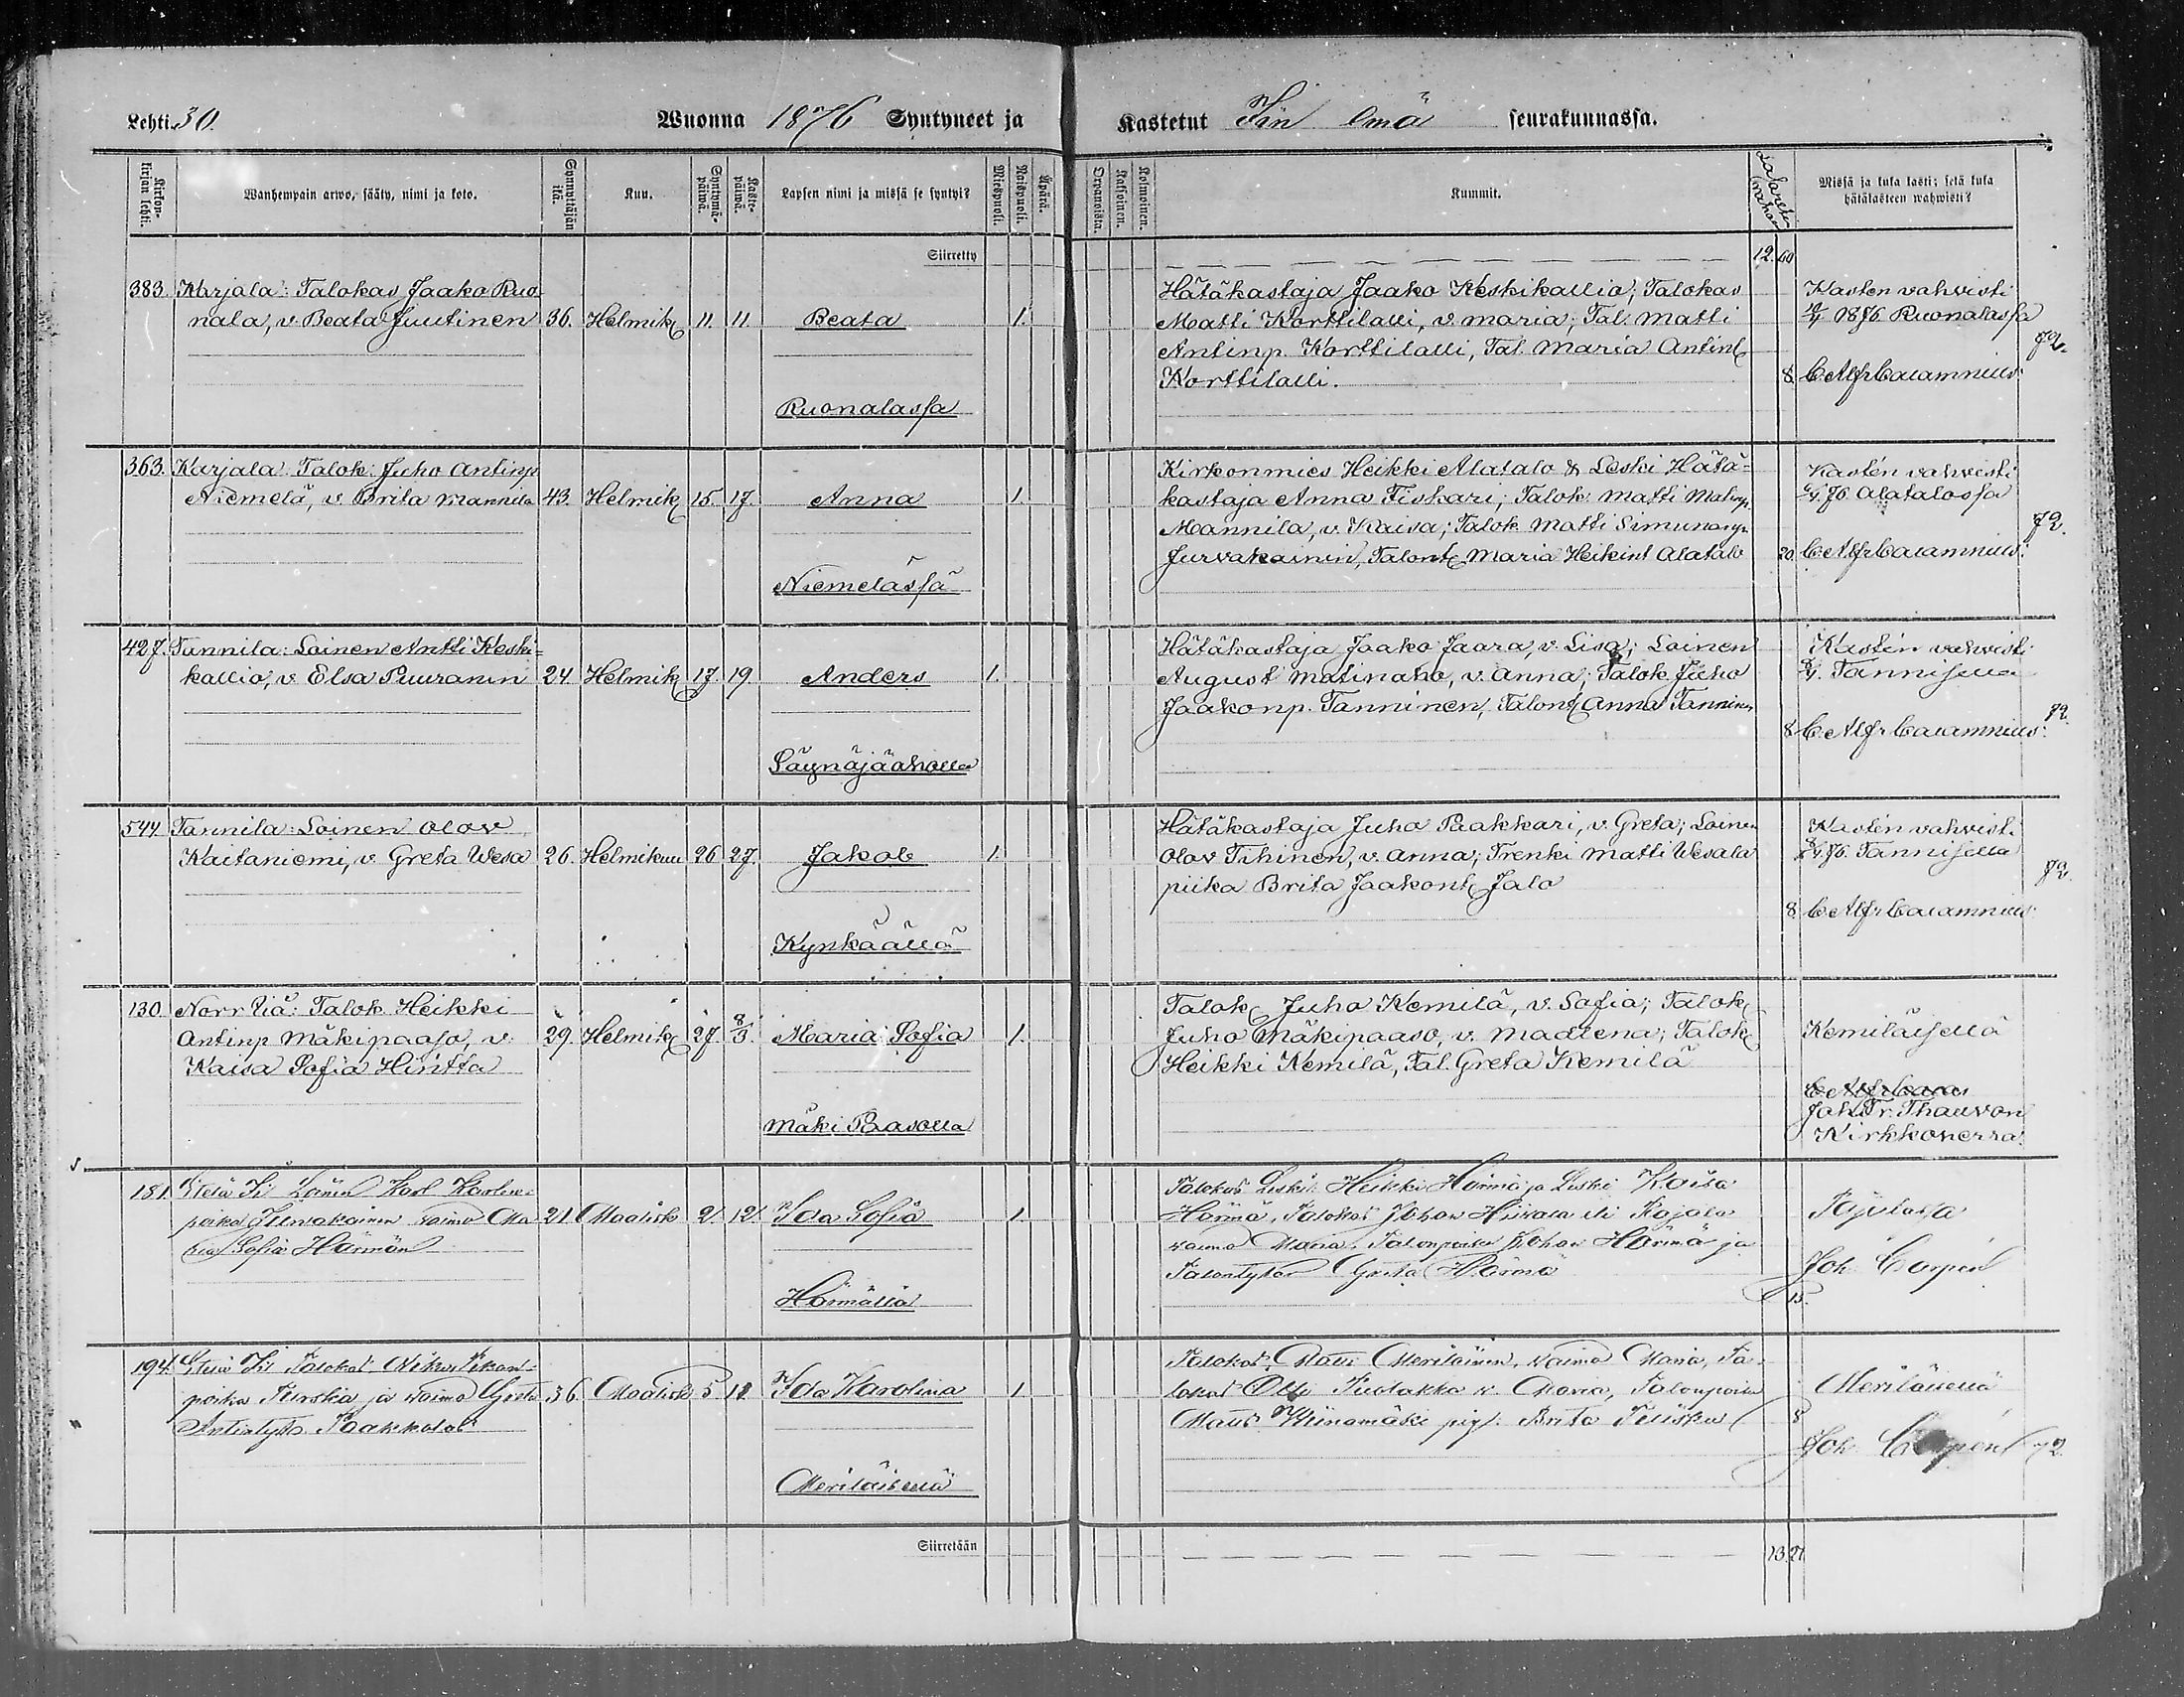 Lehti 30.
Wuonna 1876 Syntyneet ja
Kastetut Iin Emä seurakunnassa.
Kirkon-kirjan lehti.
Wanhempain arwo, sääty, nimi ja koto.
Synnyttäjän ikä.
Kuu.
Syntymä-päiwä.
Kaste-päiwä.
Lapsen nimi ja missä se syntyi?
Miespuoli.
Naispuoli.
Äpärä.
Orvanoista.
Kaksoinen.
Kolmoinen.
Kummit.
Lasareti rahaa
Missä ja kuka kasti; sekä kuka hätäkasteen wahwisti?
Siirretty
12. 60
383. Karjala: Talokas Jaako Ruo-
nala, v. Beata Juutinen 36. Helmik 11. 11. Beata 1.
Ruonalassa
Hätäkastaja Jaako Keskikallio; Talokas
Matti Korttilalli, v. Maria; Tal. Matti
Antinp. Korttilalli, Tal. Maria Antint
Korttilalli.
8
Kasten vahvisti
1876 Ruonalassa
C Alfr Calamnius.
72.
363. Karjala: Talok. Juho Antinp
Niemelä, v. Brita Mannila 43. Helmik 15. 17. Anna 1.
Niemelässä
Kirkonmies Heikki Alatalo & Leski Hätä-
kastaja Anna Fiskari; Talok. Matti Matinp.
Mannila, v. Kaisa; Talok. Matti Simunanp.
Jurvakainen, Talont Maria Heikint Alatalo
20
Kastén vahvisti
76. Alatalossa
C Alfr Calamnius.
72.
427. Tannila: Loinen Antti Keski-
kallio, v. Elsa Puuranen 24. Helmik 17. 19 Anders 1.
Säynäjäaholla
Hätäkastaja Jaako Jaara, v. Lisa; Loinen
August Matinaho, v. Anna; Talok Juho
Jaakonp. Tanninen, Talont Anna Tanninen
8
Kastén vahvisti
Tannisella
C Alfr Calamnius.
72.
544. Tannila: Loinen Olov
Kaitaniemi, v. Greta Wesa 26. Helmikuu 26 27. Jakob 1.
Kynkäällä
Hätäkastaja Juho Paakkari, v. Greta; Loinen
Olov Tihinen, v. Anna; Trenki Matti Wesala
piika Brita Jaakont Jalo
8
Kastén vahvisti
76. Tannisella
C Alfr Calamnius.
72.
130. Norr Iiä: Talok. Heikki
Antinp Mäkipaaso, v. 29. Helmik 27. 8/3. Maria Sofia 1.
Kaisa Sofia Hintta
Mäki Paasolla
Talok Juho Kemilä, v. Sofia; Talok
Juho Mäkipaaso, v. Madlena; Talok
Heikki Kemilä, Tal. Greta Kemilä
Kemiläisellä
C Alfr Cala
Joh. Fr. Thauvon
Kirkkoherra.
181. Etelä Ii Loinen Karl Karlin-
poika Jurwakainen waimo Ma 21. Maalisk 2. 12. Ida Sofia 1.
ria Sofia Härmän
Härmällä
Talokas Leski Heikki Härmä ja Leski Kaisa
Härmä, Talokas Johan Hiivala eli Kojola
waimo Maria, Talonpoika Johan Härmä ja
Talontytär Greta Härmä
15.
Joh. Corpén
194. Etelä Ii Talokas
poika Turska ja waimo Greta 36. Maalisk 5 12. Ida Karolina 1.
Antintytär Paakkolas
Meriläisellä
Talokas Matti Meriläinen, waimo Maria, Ta-
lokas Olli Puolakka w. Maria, Talonpoika
Matts Kiinamäki pig. Brita Turska
8
Meriläisellä
Joh. Corpén 72.
Siirretään
13. 27